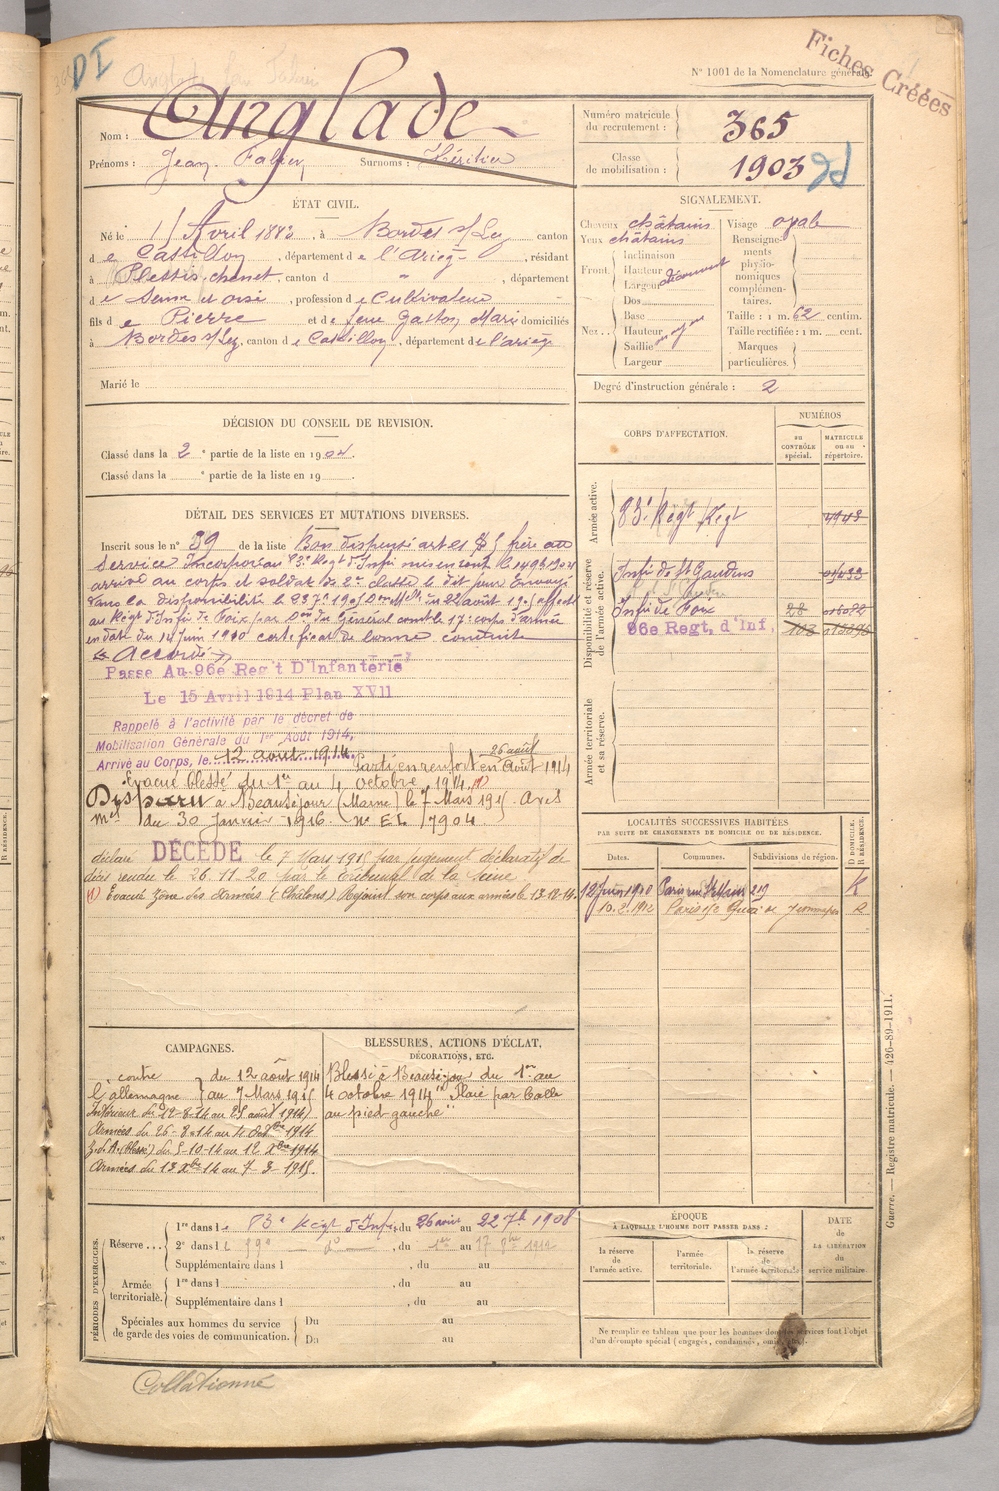 DI
Fiches Créées
N° 1001 de la Nomenclature générale.
Nom : Anglade
Prénoms : Jean Fabien Surnoms : Héritier
Numéro matricule du recrutement : 365
Classe de mobilisation : 1903
ÉTAT CIVIL.
Né le Avril 1883, à Bordes s/Lez canton
de Castillon, département de l'Ariège, résidant
à Plessis-chenet, canton d " , département
de Seine et oise, profession de Cultivateur
fils de Pierre et de feue Gaston Marie domiciliés
à Bordes s/Lez, canton de Castillon, département de l'ariège
Marié le
SIGNALEMENT.
Cheveux châtains
Yeux châtains
Front Inclinaison
Hauteur
Largeur découvert
Nez Dos
Base
Hauteur moyen
Saillie
Largeur
Visage ovale
Renseignements physionomiques complémentaires.
Taille : 1 m. 62 centim.
Taille rectifiée : 1 m. cent.
Marques particulières.
Degré d'instruction générale : 2
DÉCISION DU CONSEIL DE REVISION.
Classé dans la 2e partie de la liste en 1904.
Classé dans la e partie de la liste en 19
DÉTAIL DES SERVICES ET MUTATIONS DIVERSES.
Inscrit sous le n° 39 de la liste Bon dispensé art 21 § 5 frère au
service Incorporé au 83e Regt d'Infie
arrivé au corps et soldat de 2e classe le dit jour Envoyé
dans la disponibilité le
au Régt d'Infie de Foix par Don du Général comt le 17e corps d'armée
en date du 14 juin 1910 certificat de bonne conduite
"Accordé"
Passe Au 96e Reg't D'Infanterie
Le 15 Avril 1914 Plan XVII
Rappelé à l'activité par le décret de
Mobilisation Générale du 1er Août 1914,
Arrivé au Corps, le 12 août 1914. Parti en renfort en Août 1914
26 août
Evacué blessé du 1er au 4 octobre 1914. (1)
Disparu à Beauséjour (Marne) le 7 Mars 1915. Avis
mel du 30 janvier 1916. n° EL 7904.
déclaré DÉCÉDÉ le 7 Mars 1915 par jugement déclaratif de
décès rendu le 26.11.20 par le Tribunal de la Seine
(1) Evacué Zone des Armées (Châlons) Rejoint son corps aux armées le 13-12-14.
CORPS D'AFFECTATION.
NUMÉROS
au CONTRÔLE spécial.
MATRICULE ou au répertoire.
Armée active.
83e Régt Regt 4943
Disponibilité et réserve de l'armée active.
Infie de St Gaudens
Infie de Foix
96e Regt. d'Inf. 103
Armée territoriale et sa réserve.
LOCALITÉS SUCCESSIVES HABITÉES
PAR SUITE DE CHANGEMENTS DE DOMICILE OU DE RÉSIDENCE.
Dates. Communes. Subdivisions de région. D DOMICILE. R RÉSIDENCE.
12 Juin 1910 Paris rue St Maur 219 R
10.2.1912 Paris Quai de Jemmapes R
CAMPAGNES.
contre l'allemagne du 12 août 1914
au 7 Mars 1915
Intérieur du 12-8-14 au 25 août 1914
Armées du 26-8-14 au 4 Octbre 1914
Z.d.A. (blessé) du 5-10-14 au 12 Xbre 1914
Armées du 13 Xbre 14 au 7-3-1915.
BLESSURES, ACTIONS D'ÉCLAT,
DÉCORATIONS, ETC.
Blessé à Beauséjour du 1er au
4 octobre 1914 "Plaie par balle
au pied gauche"
PÉRIODES D'EXERCICES.
Réserve ... 1re dans le 83e Régt d'Infie, du 26 août au 22 7b 1908
2e dans le 59e do, du 1er au 17 8bre 1912
Supplémentaire dans l , du au
Armée territoriale. 1re dans l , du au
Supplémentaire dans l , du au
Spéciales aux hommes du service Du au
de garde des voies de communication. Du au
ÉPOQUE
À LAQUELLE L'HOMME DOIT PASSER DANS :
la réserve de l'armée active.
l'armée territoriale.
la réserve de l'armée territoriale
DATE de LA LIBÉRATION du service militaire.
Ne remplir ce tableau que pour les hommes dont les services font l'objet
d'un décompte spécial (engagés, condamnés, omis, etc.).
Guerre. — Registre matricule. — 426-89-1911.
Collationné